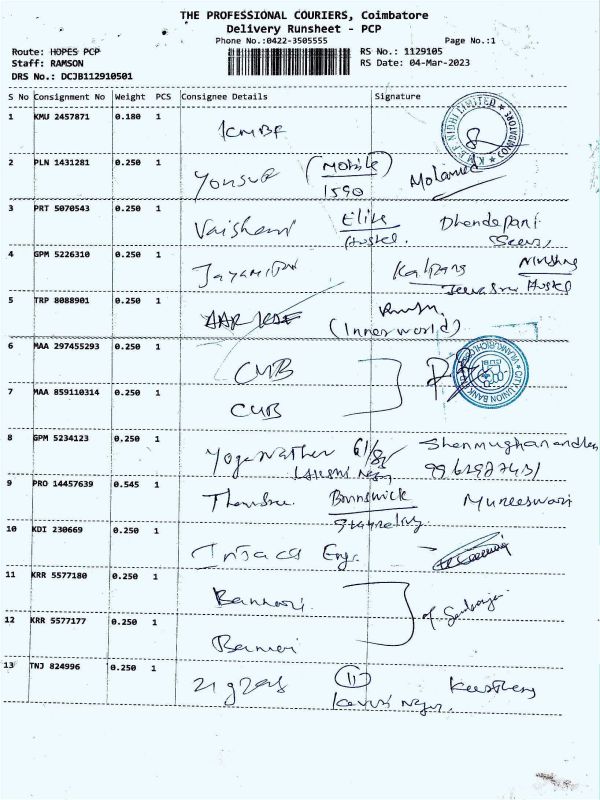 THE PROFESSIONAL COURIERS, Coimbatore
Delivery Runsheet - PCP
Phone No.:0422-3505555 Page No.:1
Route: HOPES PCP RS No.: 1129105
Staff: RAMSON RS Date: 04-Mar-2023
DRS No.: DCJB112910501
S No Consignment No Weight PCS Consignee Details Signature
1 KMU 2457871 0.180 1
KMBF
2 PLN 1431281 0.250 1
Yousuf (Mobile) Mohamed
1590
3 PRT 5070543 0.250 1
Vaishnavi Elite Dhandapani
Hostel.
4 GPM 5226310 0.250 1
Kalpana
Hostel
5 TRP 8088901 0.250 1
(Inner world)
6 MAA 297455293 0.250 1
CUB
CITY UNION BANK
7 MAA 859110314 0.250 1
CUB
8 GPM 5234123 0.250 1
Yoganathan 61/8 Shanmughanandhan
Lakshmi Nagar
9 PRO 14457639 0.545 1
Brunswick Muneeswari
10 KDI 230669 0.250 1
Engr.
11 KRR 5577180 0.250 1
Bannari
12 KRR 5577177 0.250 1
Bannari
13 TNJ 824996 0.250 1
Zigzags (11)
Nagar.